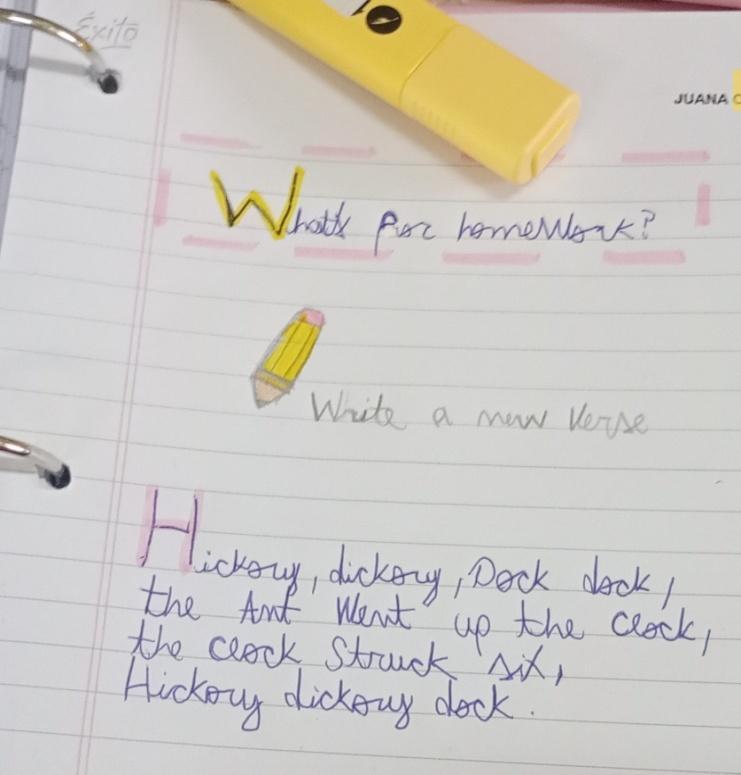 Éxito
JUANA
What's for homework?
Write a new verse
Hickory, dickory, Dock dock,
the Ant Went up the clock,
the clock Struck six,
Hickory dickory dock.